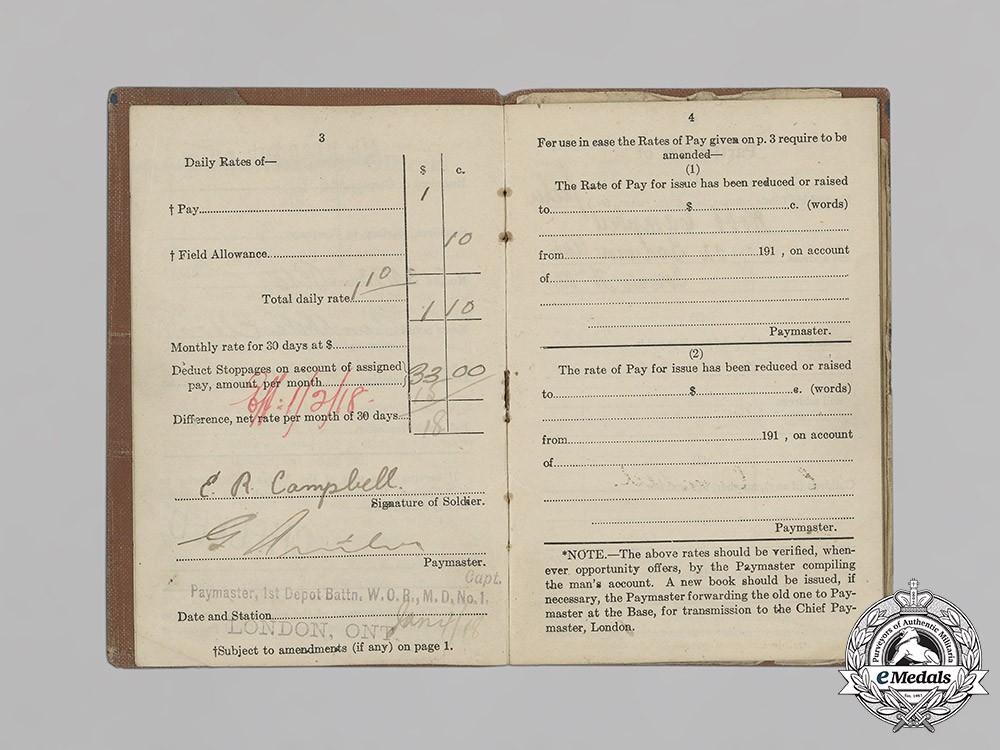 3
Daily Rates of—
$ c.
† Pay 1
† Field Allowance 10
1 10
Total daily rate 1 10
Monthly rate for 30 days at $
Deduct Stoppages on account of assigned
pay, amount per month 33 00
15
Eff: 1/2/18.
Difference, net rate per month of 30 days 18
E. R. Campbell.
Signature of Soldier.
G
Paymaster.
Capt.
Paymaster, 1st Depot Battn. W. O. R., M. D. No. 1.
Date and Station
LONDON, ONT.
†Subject to amendments (if any) on page 1.
4
For use in case the Rates of Pay given on p. 3 require to be
amended—
(1)
The Rate of Pay for issue has been reduced or raised
to $ c. (words)
from 191 , on account
of
Paymaster.
(2)
The rate of Pay for issue has been reduced or raised
to $ c. (words)
from 191 , on account
of
Paymaster.
*NOTE.—The above rates should be verified, when-
ever opportunity offers, by the Paymaster compiling
the man's account. A new book should be issued, if
necessary, the Paymaster forwarding the old one to Pay-
master at the Base, for transmission to the Chief Pay-
master, London.
Purveyors of Authentic Militaria
eMedals